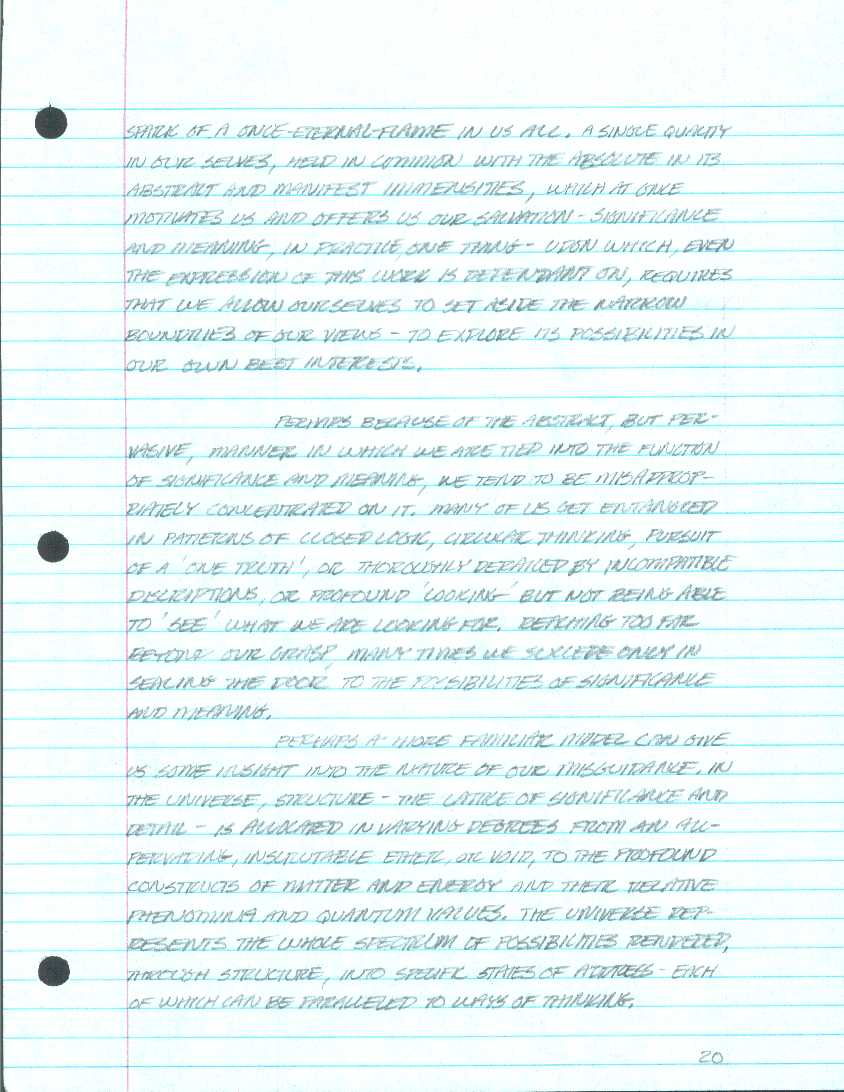 SPARK OF A ONCE-ETERNAL-FLAME IN US ALL. A SINGLE QUALITY
IN OUR SELVES, HELD IN COMMON WITH THE ABSOLUTE IN ITS
ABSTRACT AND MANIFEST IMMENSITIES, WHICH AT ONCE
MOTIVATES US AND OFFERS US OUR SALVATION - SIGNIFICANCE
AND MEANING, IN PRACTICE, ONE THING - UPON WHICH, EVEN
THE EXPRESSION OF THIS WORK IS DEPENDANT ON, REQUIRES
THAT WE ALLOW OURSELVES TO SET ASIDE THE NARROW
BOUNDRIES OF OUR VIEWS - TO EXPLORE ITS POSSIBILITIES IN
OUR OWN BEST INTERESTS.
PERHAPS BECAUSE OF THE ABSTRACT, BUT PER-
VASIVE, MANNER IN WHICH WE ARE TIED INTO THE FUNCTION
OF SIGNIFICANCE AND MEANING, WE TEND TO BE MISAPPROP-
RIATELY CONCENTRATED ON IT. MANY OF US GET ENTANGLED
IN PATTERNS OF CLOSED LOGIC, CIRCULAR THINKING, PURSUIT
OF A 'ONE TRUTH', OR THOROUGHLY DERAILED BY INCOMPATIBLE
DISCRIPTIONS, OR PROFOUND 'LOOKING' BUT NOT BEING ABLE
TO 'SEE' WHAT WE ARE LOOKING FOR. REACHING TOO FAR
BEYOND OUR GRASP, MANY TIMES WE SUCCEDE ONLY IN
SEALING THE DOOR TO THE POSSIBILITIES OF SIGNIFICANCE
AND MEANING.
PERHAPS A MORE FAMILIAR MODEL CAN GIVE
US SOME INSIGHT INTO THE NATURE OF OUR MISGUIDANCE. IN
THE UNIVERSE, STRUCTURE - THE LATTICE OF SIGNIFICANCE AND
DETAIL - IS ALLOCATED IN VARYING DEGREES FROM AN ALL-
PERVADING, INSCRUTABLE ETHER, OR VOID, TO THE PROFOUND
CONSTRUCTS OF MATTER AND ENERGY AND THEIR RELATIVE
PHENOMINA AND QUANTUM VALUES. THE UNIVERSE REP-
RESENTS THE WHOLE SPECTRUM OF POSSIBILITIES RENDERED,
THROUGH STRUCTURE, INTO SPECIFIC STATES OF ADDRESS - EACH
OF WHICH CAN BE PARALLELED TO WAYS OF THINKING.
20